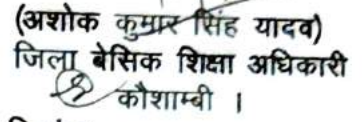 (अशोक कुमार सिंह यादव)
जिला बेसिक शिक्षा अधिकारी
कौशाम्बी ।